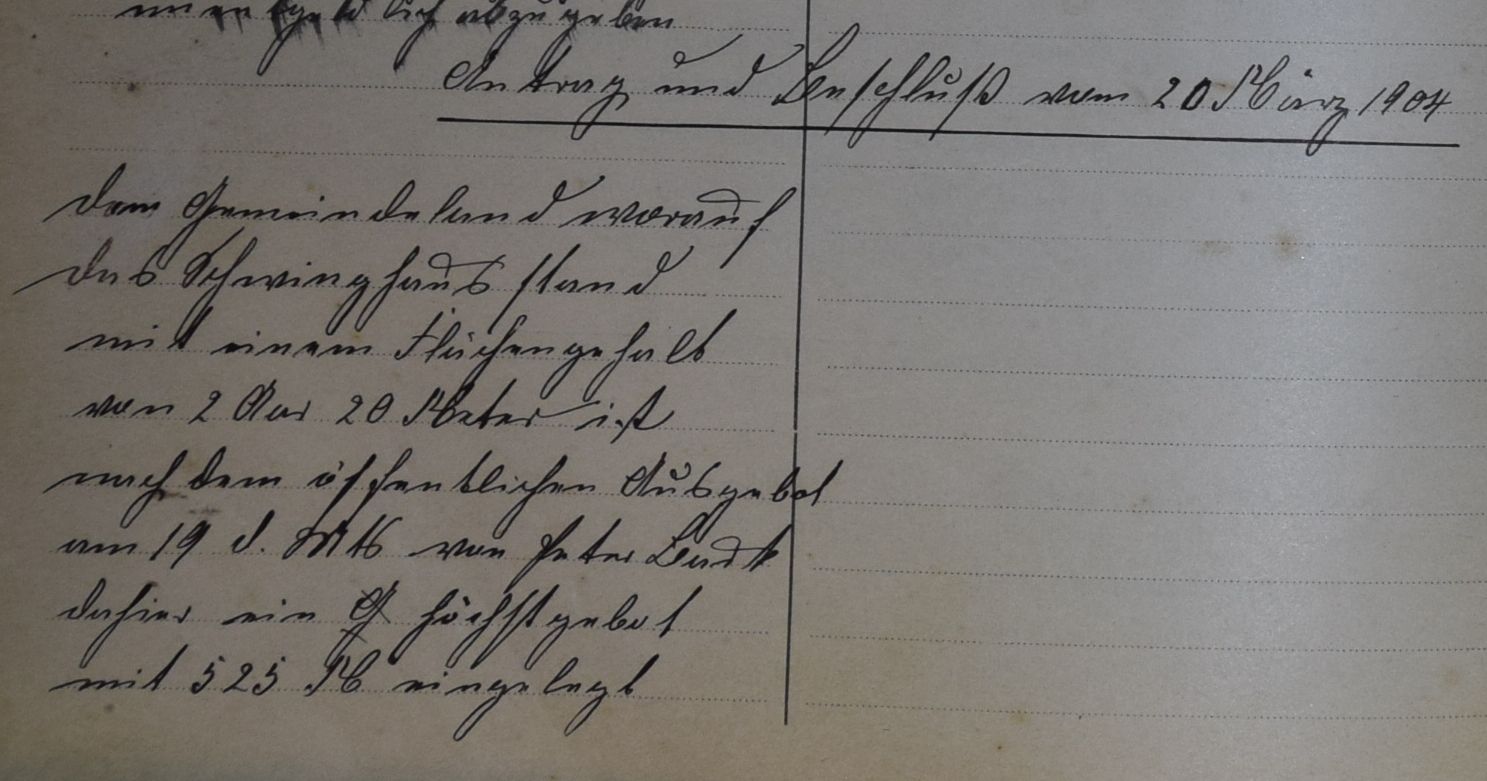 unentgeldlich abzugeben
Antrag und Beschluß vom 20 März 1904
dem Gemeindeland worauf
das Schwinghaus stand
mit einem Flächengehalt
von 2 Aar 20 Meter ist
nach dem öffentlichen Ausgebot
am 19 d. Mts von Peter
dahier ein höchstgebot
mit 525 M eingelegt